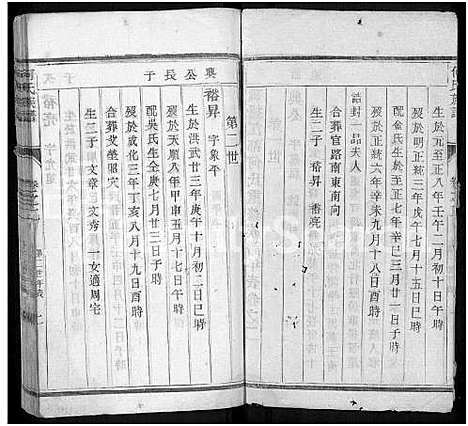 何氏族譜
生於元至正八年壬午二月初二日午時
歿於明正統三年戊午七月十五日巳時
配金氏生於至正七年辛巳三月廿一日子時
誥封一品夫人
歿於正統六年辛未九月十八日酉時
合葬官路南東南向
生二子 裕昇 裕亮
第二世
公長子
裕昇 字象平
生於洪武廿三年庚午十月初二日巳時
歿於天順八年甲申五月十七日午時
配吳氏生仝庚七月廿三日子時
歿於成化三年丁亥八月十九日酉時
合葬艾塋昭穴
生二子 文章 文秀 一女適周宅
何氏族譜